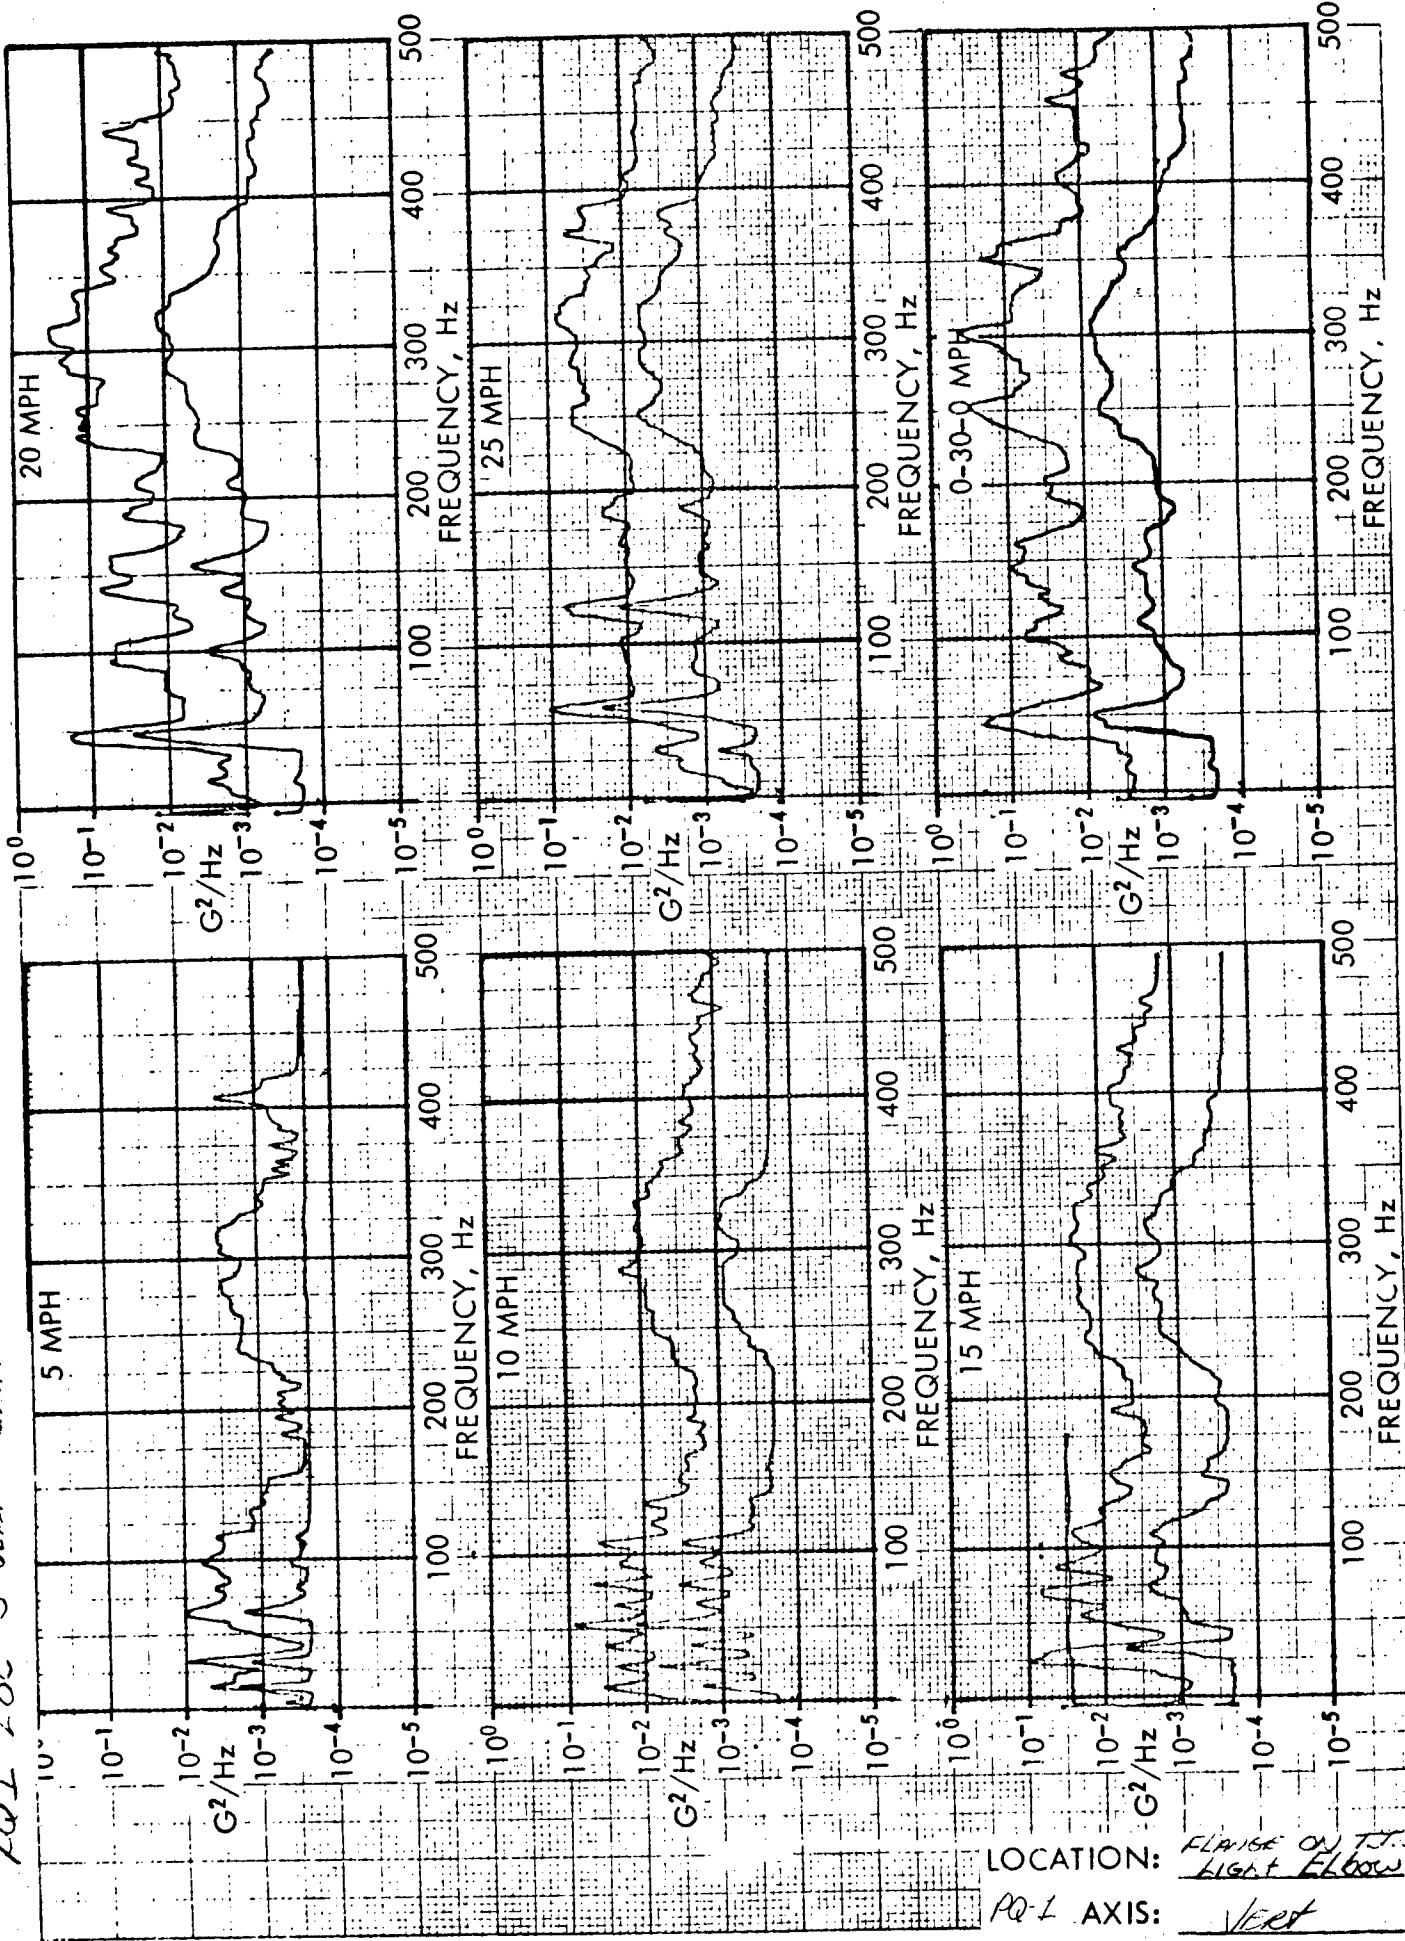 5 MPH
10⁻¹
10⁻²
G²/Hz
10⁻³
10⁻⁴
10⁻⁵
100
200
300
400
500
FREQUENCY, Hz
10 MPH
10⁰
10⁻¹
10⁻²
G²/Hz
10⁻³
10⁻⁴
10⁻⁵
100
200
300
400
500
FREQUENCY, Hz
15 MPH
10⁰
10⁻¹
10⁻²
G²/Hz
10⁻³
10⁻⁴
10⁻⁵
100
200
300
400
500
FREQUENCY, Hz
20 MPH
10⁰
10⁻¹
10⁻²
G²/Hz
10⁻³
10⁻⁴
10⁻⁵
100
200
300
400
500
FREQUENCY, Hz
25 MPH
10⁰
10⁻¹
10⁻²
G²/Hz
10⁻³
10⁻⁴
10⁻⁵
100
200
300
400
500
FREQUENCY, Hz
0-30-0 MPH
10⁰
10⁻¹
10⁻²
G²/Hz
10⁻³
10⁻⁴
10⁻⁵
100
200
300
400
500
FREQUENCY, Hz
LOCATION: FLANGE ON T.T.
Light Elbow
PQ-1 AXIS: VERT